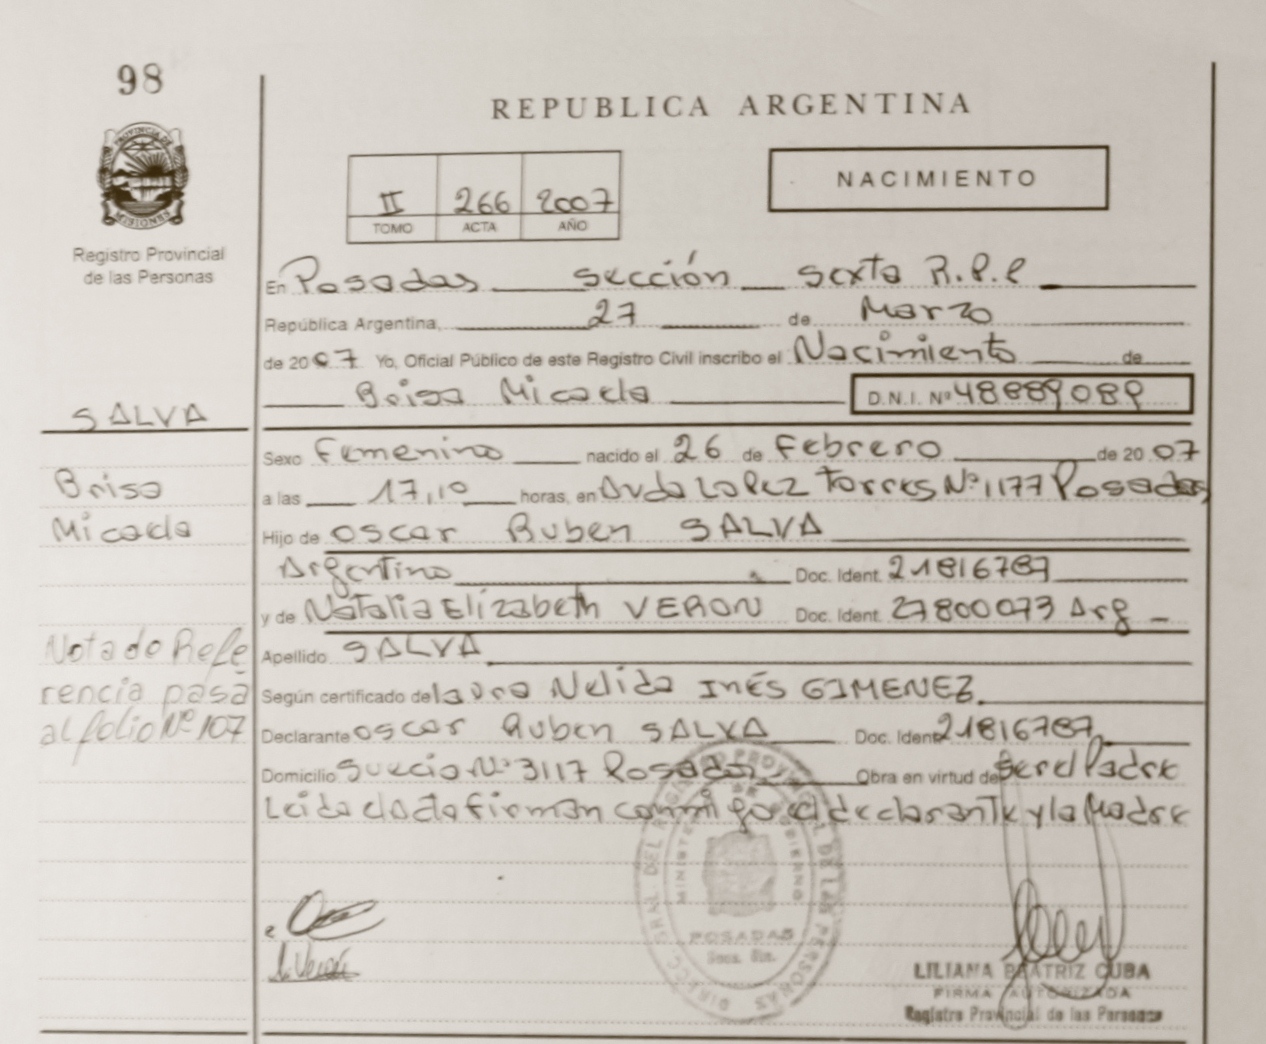 98
REPUBLICA ARGENTINA
PROVINCIA DE
MISIONES
Registro Provincial
de las Personas
II 266 2007
TOMO ACTA AÑO
NACIMIENTO
En Posadas sección sexta R.P.P
República Argentina, 27 de Marzo
de 2007 Yo, Oficial Público de este Registro Civil inscribo el Nacimiento de
Brisa Micaela D.N.I. Nº 48889089
SALVA
Brisa
Micaela
Sexo Femenino nacido el 26 de Febrero de 2007
a las 17,10 horas, en Avda Lopez Torres Nº 1177 Posadas
Hijo de Oscar Ruben SALVA
Argentino Doc. Ident. 21816787
y de Natalia Elizabeth VERON Doc. Ident. 27800073 Arg
Apellido SALVA
Según certificado de Laura Nelida Inés GIMENEZ
Declarante Oscar Ruben SALVA Doc. Ident 21816787
Domicilio Suecia Nº 3117 Posadas Obra en virtud de ser el Padre
Leida el acta firman conmigo el declarante y la Madre
Nota de Refe
rencia pasa
al folio Nº 107
POSADAS
LILIANA BEATRIZ CUBA
FIRMA AUTORIZADA
Registro Provincial de las Personas